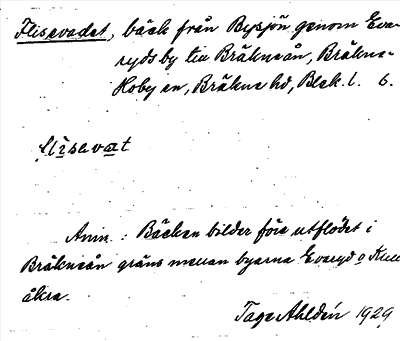 Flisevadet, bäck från Bysjön genom Eve-
ryds by till Bräkneån, Bräkne-
Hoby sn, Bräkne hd, Blek. l. 6.
flisevat
Anm.: Bäcken bilder före utflödet i
Bräkneån gräns mellan byarna Everyd o Kull
åkra.
Tage Ahldén 1929